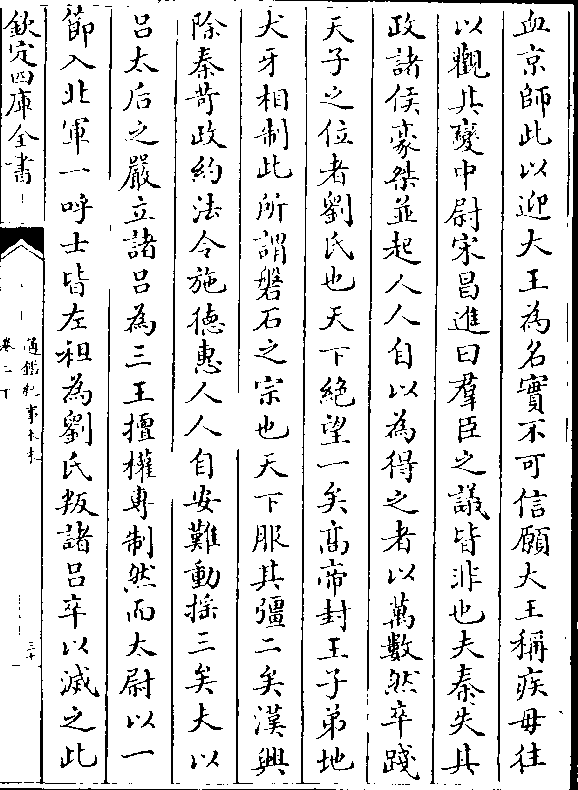 血京師此以迎大王為名實不可信願大王稱疾毋往
以觀其變中尉宋昌進曰羣臣之議皆非也夫秦失其
政諸侯豪桀並起人人自以為得之者以萬數然卒踐
天子之位者劉氏也天下絶望一矣高帝封王子弟地
犬牙相制此所謂磐石之宗也天下服其彊二矣漢興
除秦苛政約法令施德惠人人自安難動揺三矣夫以
吕太后之嚴立諸吕為三王擅權専制然而太尉以一
節入北軍一呼士皆左袒為劉氏叛諸吕卒以滅之此
欽定四庫全書
通鑑紀事本末
卷二下
三十